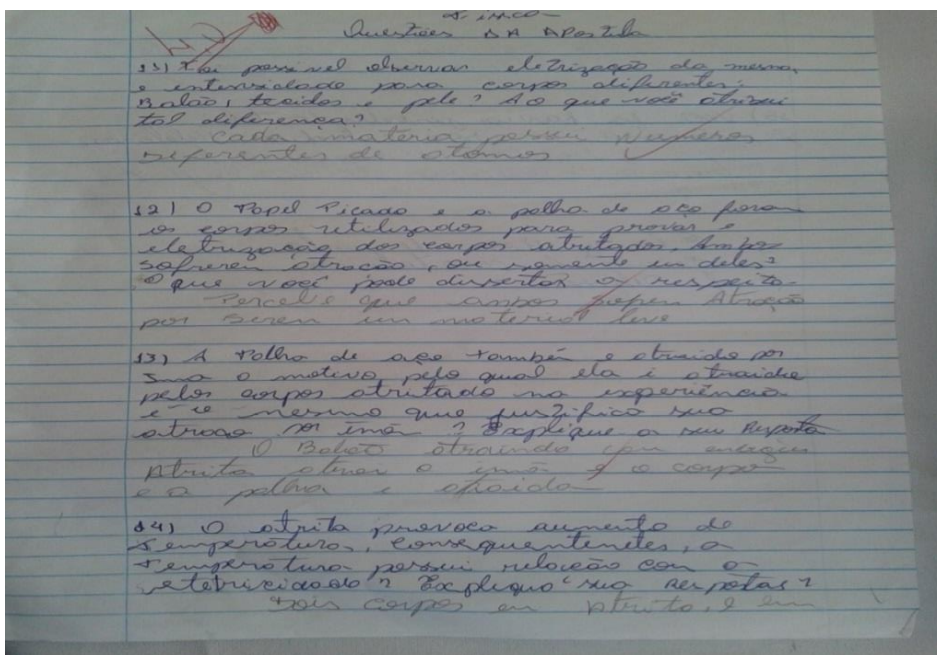 Questões DA APostila
11) Foi possivel observar eletrização da mesma
intensidade para corpos diferentes.
Balão, tecidos e pele? Ao que você atribui
tal diferença?
Cada materia possui Numeros
diferentes de atomos
12) O Papel Picado e a palha de aço foram
os corpos utilizados para provar e
eletrização dos corpos atritados. Ambos
sofreram atração, ou somente um deles?
O que você pode dissertar a respeito.
Percebe que ambos Atração
por serem um material leve
13) A Palha de aço também e atraida por
Ima o motivo pelo qual ela é atraida
pelos corpos atritado na experiência
e o mesmo que justifica sua
atração por Imã? Explique a sua Resposta
O Balão atraindo com energia
Atrito o imã e o corpo
e a palha e atraida
14) O atrito provoca aumento de
Temperatura, consequentemetes, a
temperatura possui relação com a
eletricidade? Explique sua respotas?
Dois corpos em Atrito, e em